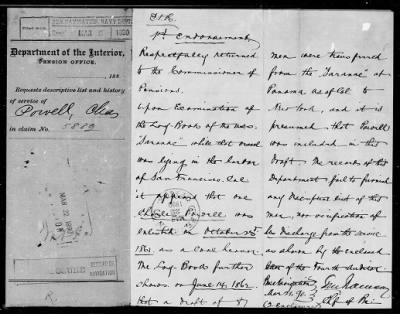 Department of the Interior,
PENSION OFFICE.
188
Requests descriptive list and history
of service of
Powell, Chas
in claim No. 5889
MAR 22 1890
BUREAU OF
NAVIGATION
R.
1st Endorsement
Respectfully returned
to the Commissioner of
Pensions.
Upon Examination of
the Log-Book of the U.S.S.
"Saranac" while that vessel
was lying in the harbor
of San Francisco, Cal
it appears that one
Charles Powell was
Enlisted October
1861 as a Coal heaver.
The Log Book further
shows on June 14, 1862
that a draft of 81
men were transferred
from the "Saranac" at
Panama to
New York, and it is
presumed that Powell
was included in this
Draft. The records of this
Department fail to furnish
any Descriptive list of this
man, nor verification of
his Discharge from the service
as shown by the enclosed
letter of the Fourth Auditor